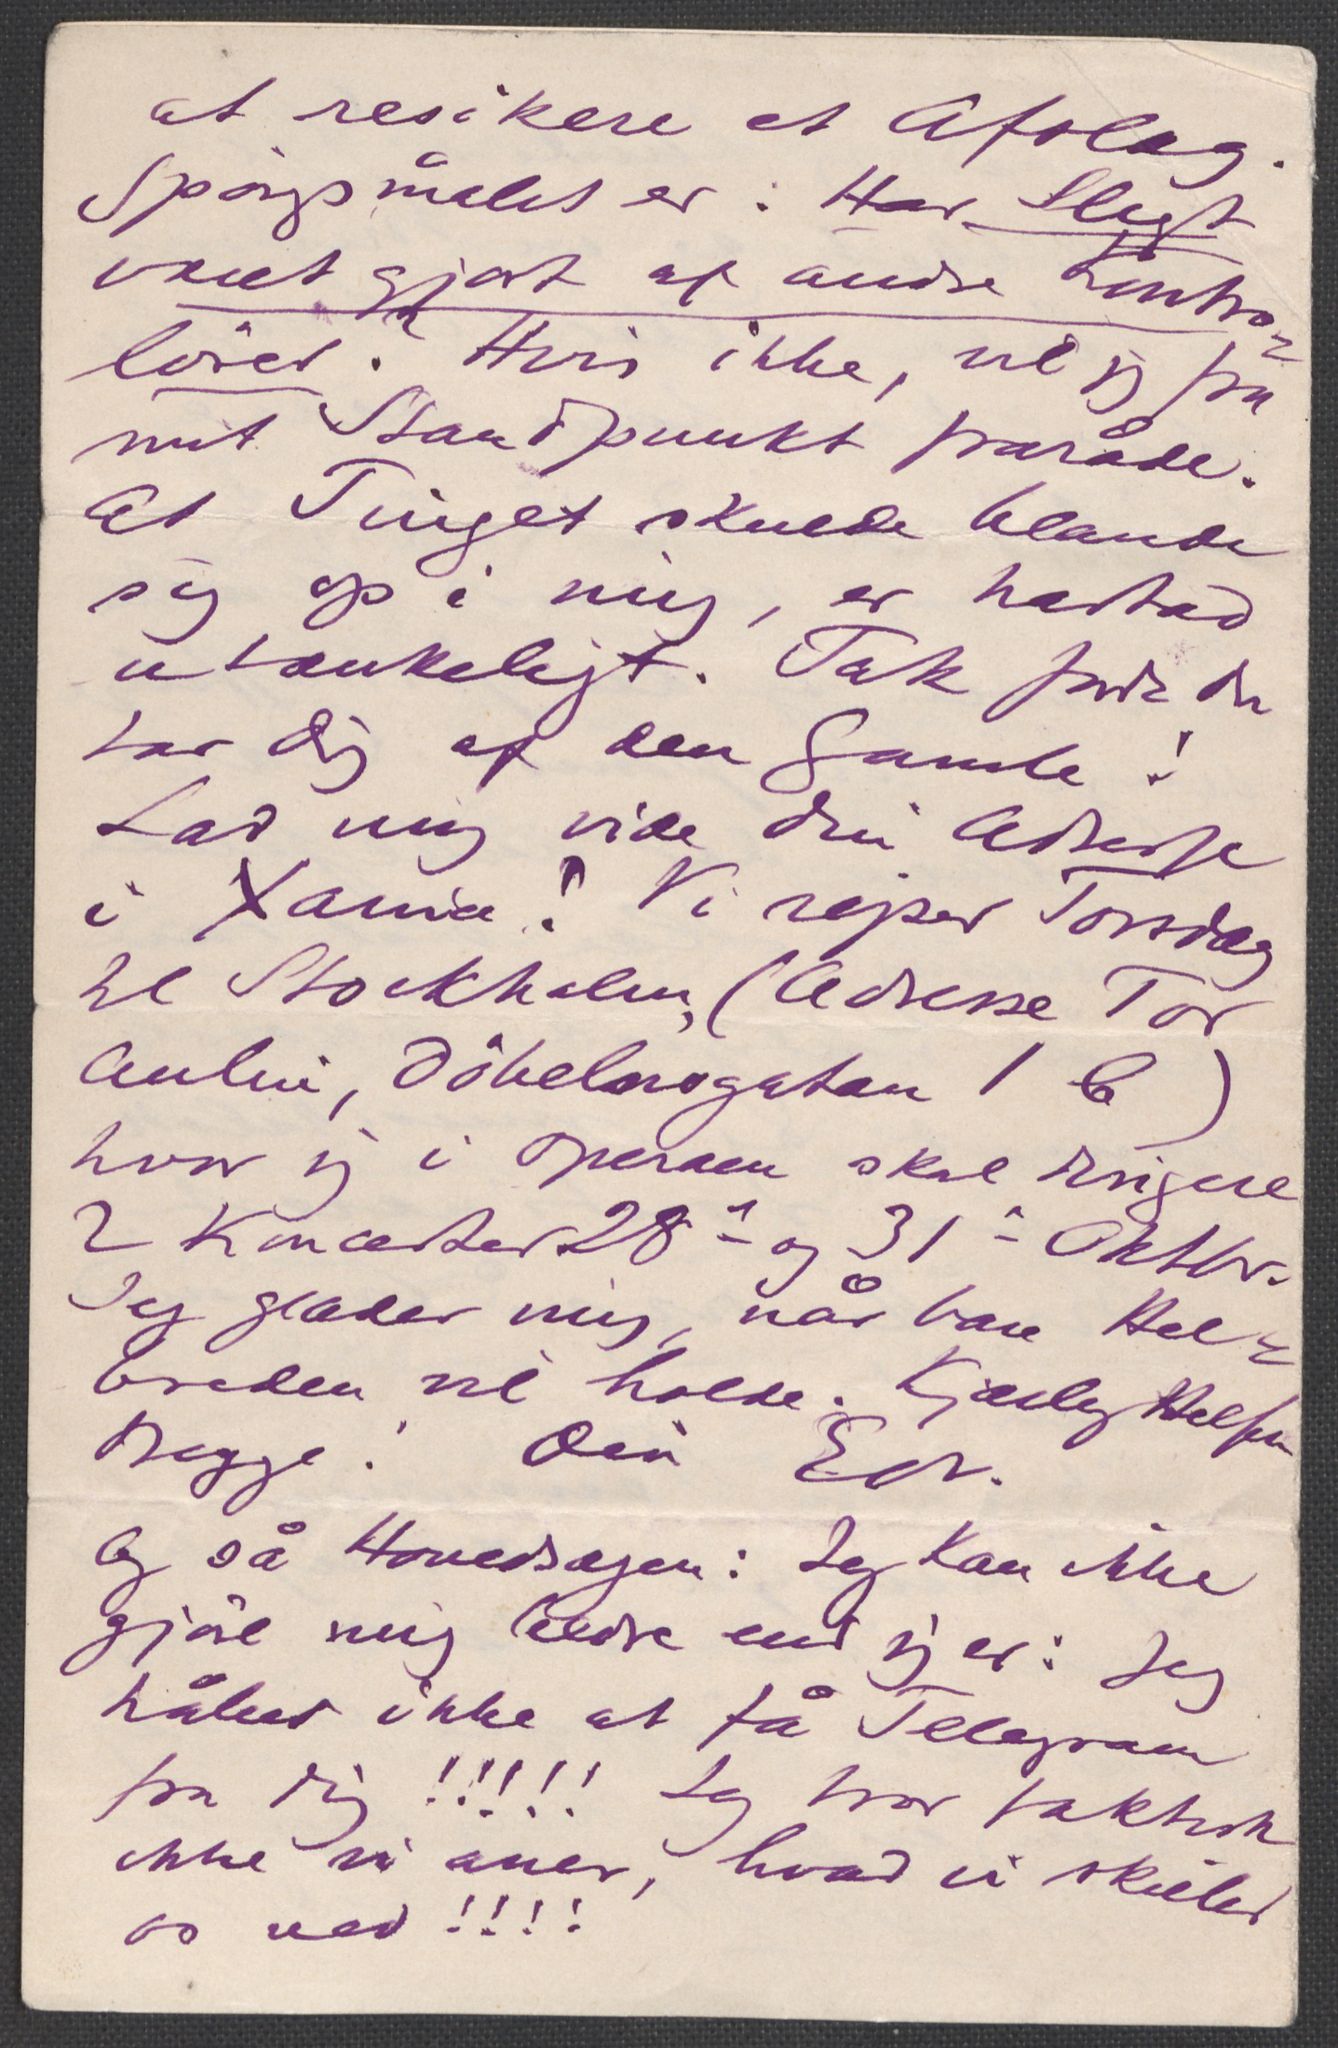 at resikere et Afslag.
Spörgsmålet er: Har Sligt
været gjort af andre Kontro-
lörer? Hvis ikke, vil jeg fra
mit Standpunkt fraråde.
At Tinget skulde blande
sig op i mig, er hartad
utænkeligt. Tak fordi du
tar dig af den Gamle!
Lad mig vide din Adresse
i Xania! Vi rejser Torsdag
til Stockholm, (Adresse Tor
Aulin, Döbelnsgatan 1 b)
hvor jeg i Operaen skal dirigere
2 Koncerter 28- og 31- Oktbr.
Jeg glæder mig, når bare Hel-
breden vil holde. Kjærlig Hilsen
Begge! Din Edv.
Og så Hovedsagen: Jeg kan ikke
gjöre mig bedre end jeg er: Jeg
tåler ikke at få Telegram
fra dig !!!!! Jeg tror faktisk
ikke vi aner, hvad vi skiller
os ved !!!!